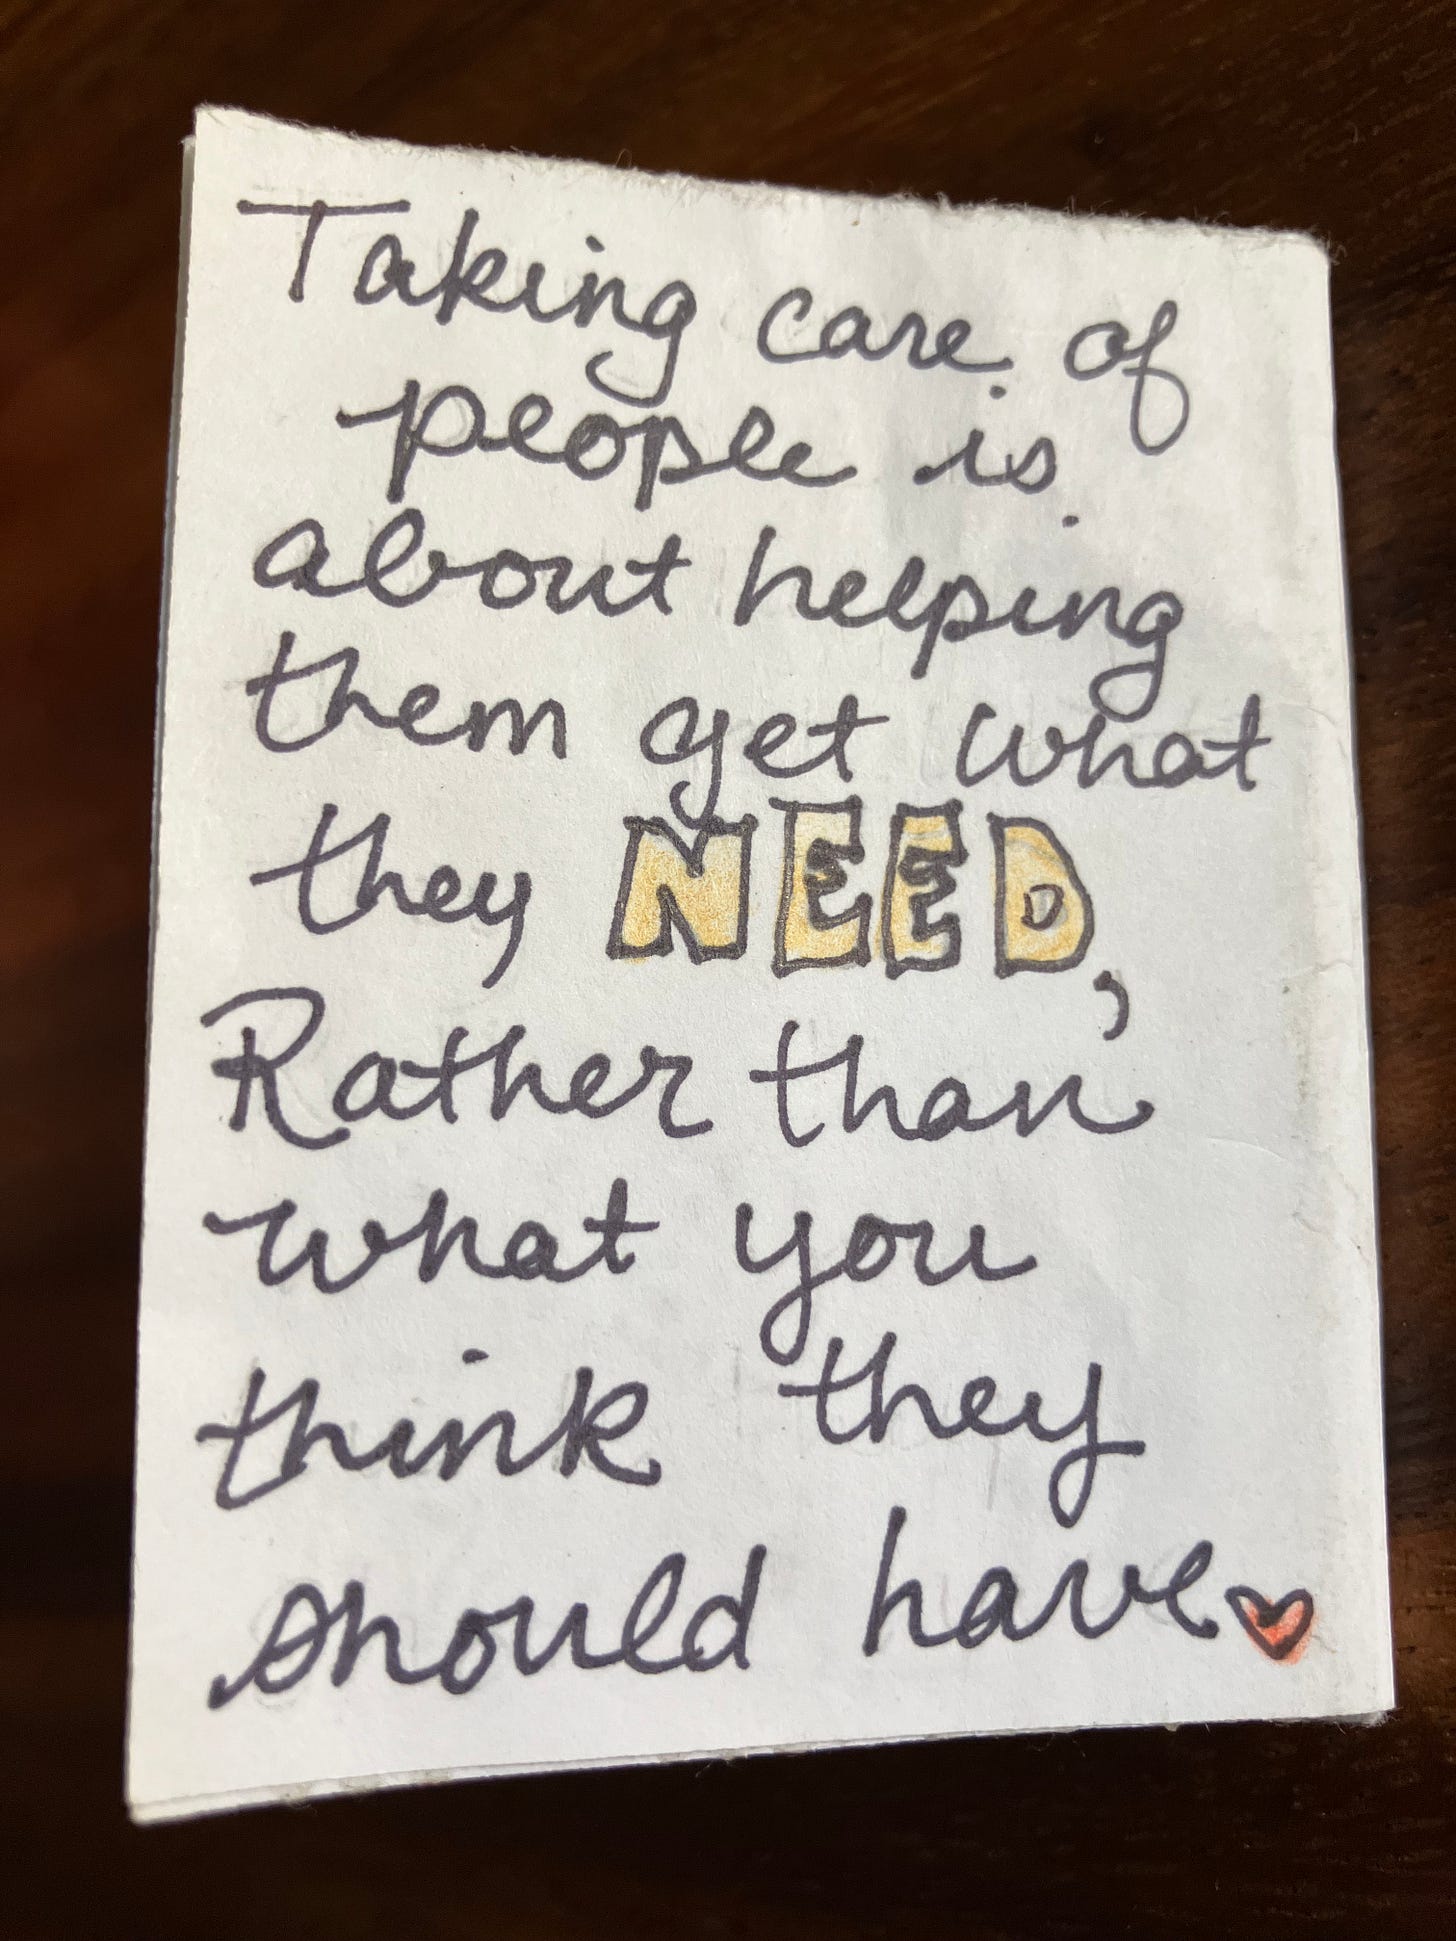 Taking care of
people is
about helping
them get what
they NEED,
Rather than
what you
think they
should have